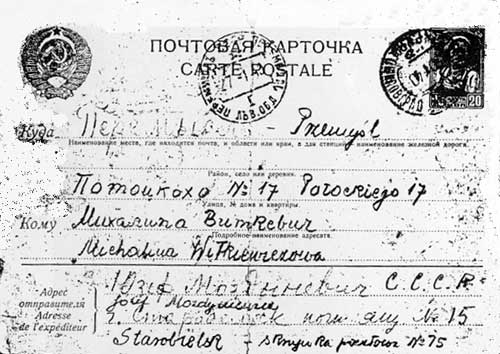 ПОЧТОВАЯ КАРТОЧКА
CARTE POSTALE
20
Куда Перемышль - Przemyśl
Наименование места, где находится почта, и области или края, а для станций наименование железной дороги.
Район, село или деревня.
Потоцкого № 17 Potockiego 17
Улица, № дома и квартиры.
Кому Михалина Виткевич
Подробное наименование адресата.
Michalina Witkiewiczowa
Адрес отправителя
Adresse de l'expéditeur
Юзеф С.С.С.Р.
Józef
г. Старобельск почт. ящ. № 15
Starobielsk - skrzynka pocztowa N°